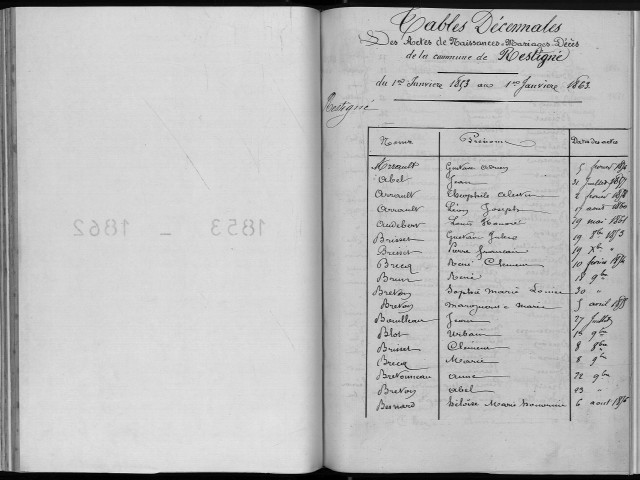 1853 - 1862
Tables Décennales
Des Actes de Naissances-Mariages-Décès
de la commune de Restigné
du 1er Janvier 1853 au 1er Janvier 1863.
Restigné
Noms Prénoms Dates des actes
Arrault Gustave 5 février
Abel Jean 21 Juillet 1857
Arrault Théophile Célestin 2 février
Arrault Léon Joseph août 1860
Audebert Louis Honoré 19 mai 1861
Brisset Gustave Jules 19 8bre 1853
Brisset Pierre 19 Xbre "
Brecq René Clément 10 février 1854
Brun René 18 9bre
Breton Sophie Marie Louise 20 "
Breton Marguerite Marie 5 avril 1855
Bouilleau Jean 27 Juillet
Blot Urbain 9bre
Brisset Clément 8 8bre
Brecq Marie 8 9bre
Bretonneau Anne 22 9bre
Breton Abel 23 "
Besnard Héloïse Marie 6 août